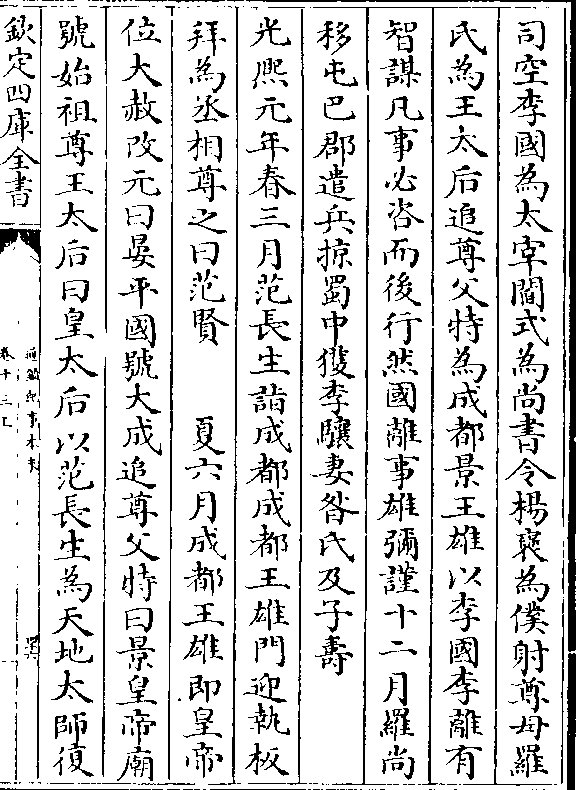 司空李國為太宰閻式為尚書令楊褒為僕射尊母羅
氏為王太后追尊父特為成都景王雄以李國李離有
智謀凡事必咨而後行然國離事雄彌謹十二月羅尚
移屯巴郡遣兵掠蜀中獲李驤妻昝氏及子壽
光熙元年春三月范長生詣成都成都王雄門迎執板
拜為丞相尊之曰范賢　夏六月成都王雄即皇帝
位大赦改元曰晏平國號大成追尊父特曰景皇帝廟
號始祖尊王太后曰皇太后以范長生為天地太師復
欽定四庫全書
通鑑紀事本末
卷十三上